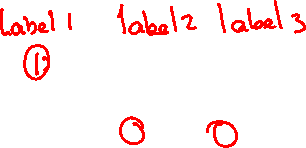 Label 1 label 2 label 3